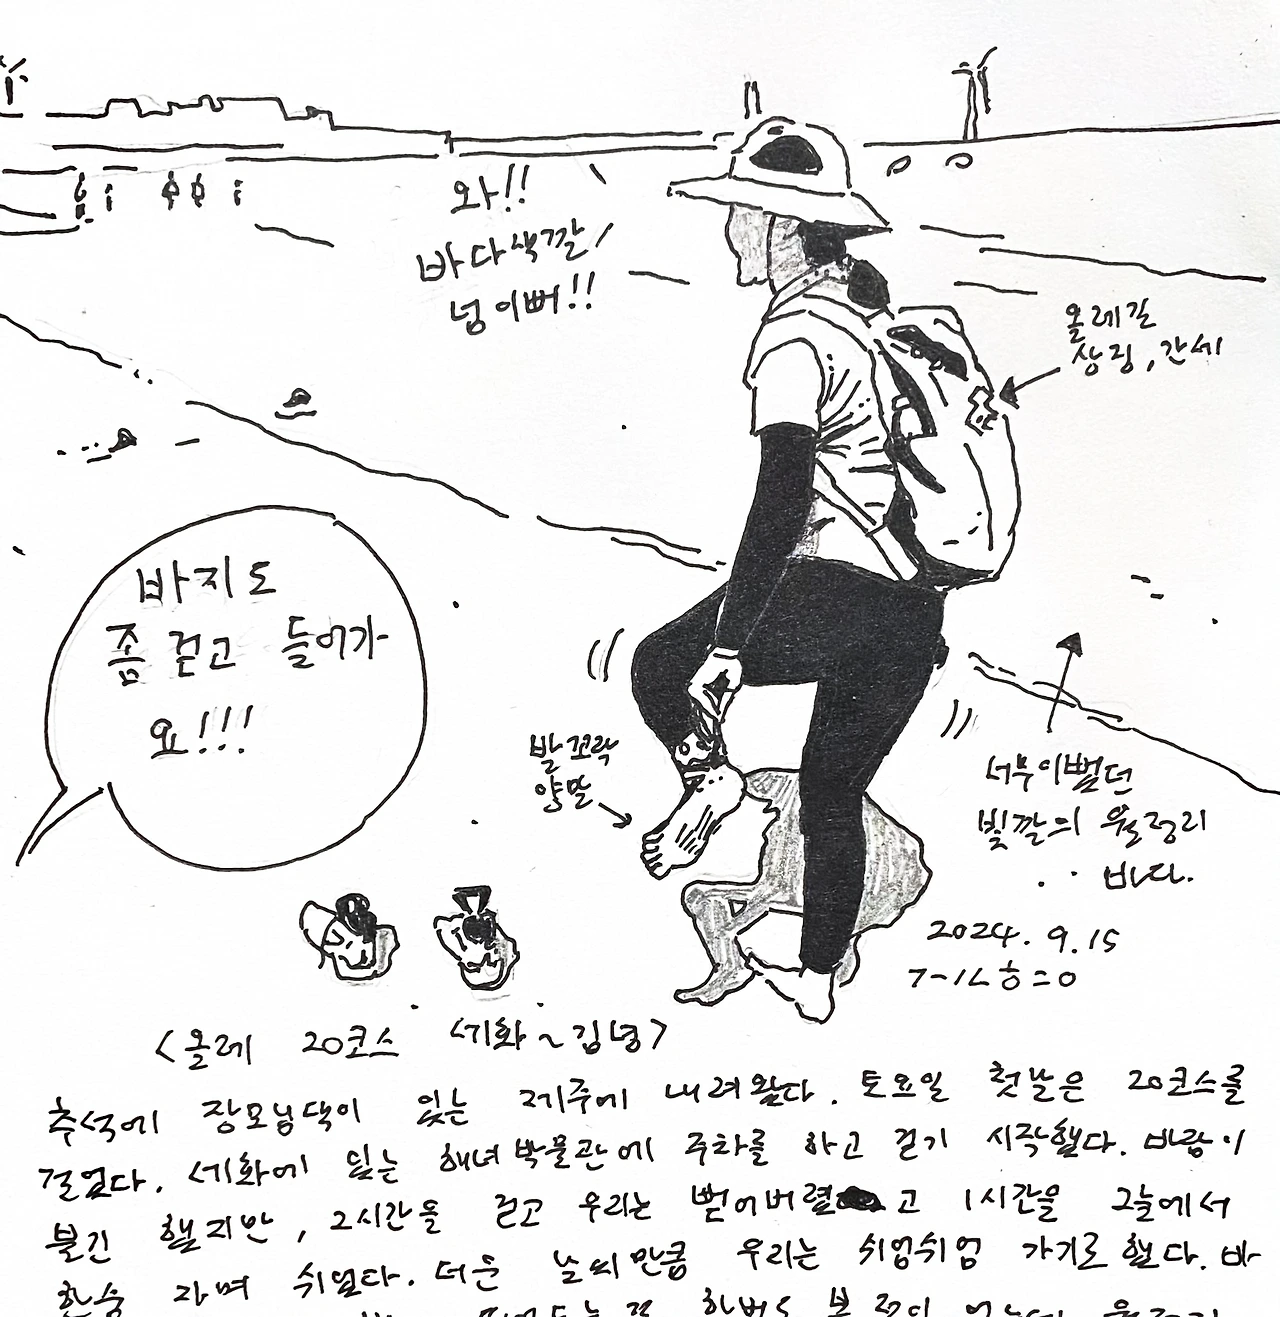 와!!
바다색깔
넘 이뻐!!
올레길
상징, 간세
바지도
좀 걷고 들어가
요!!!
발꼬락
양말
너무 이뻤던
빛깔의 월정리
바다.
2024. 9.15
<올레 20코스 세화~김녕>
추석에 장모님댁이 있는 제주에 내려왔다. 토요일 첫날은 20코스를
걸었다. 세화에 있는 해녀박물관에 주차를 하고 걷기 시작했다. 바람이
불긴 했지만, 2시간을 걷고 우리는 뻗어버렸고 1시간을 그늘에서
한숨 자며 쉬었다. 더운 날씨만큼 우리는 쉬엄쉬엄 가기로 했다. 바